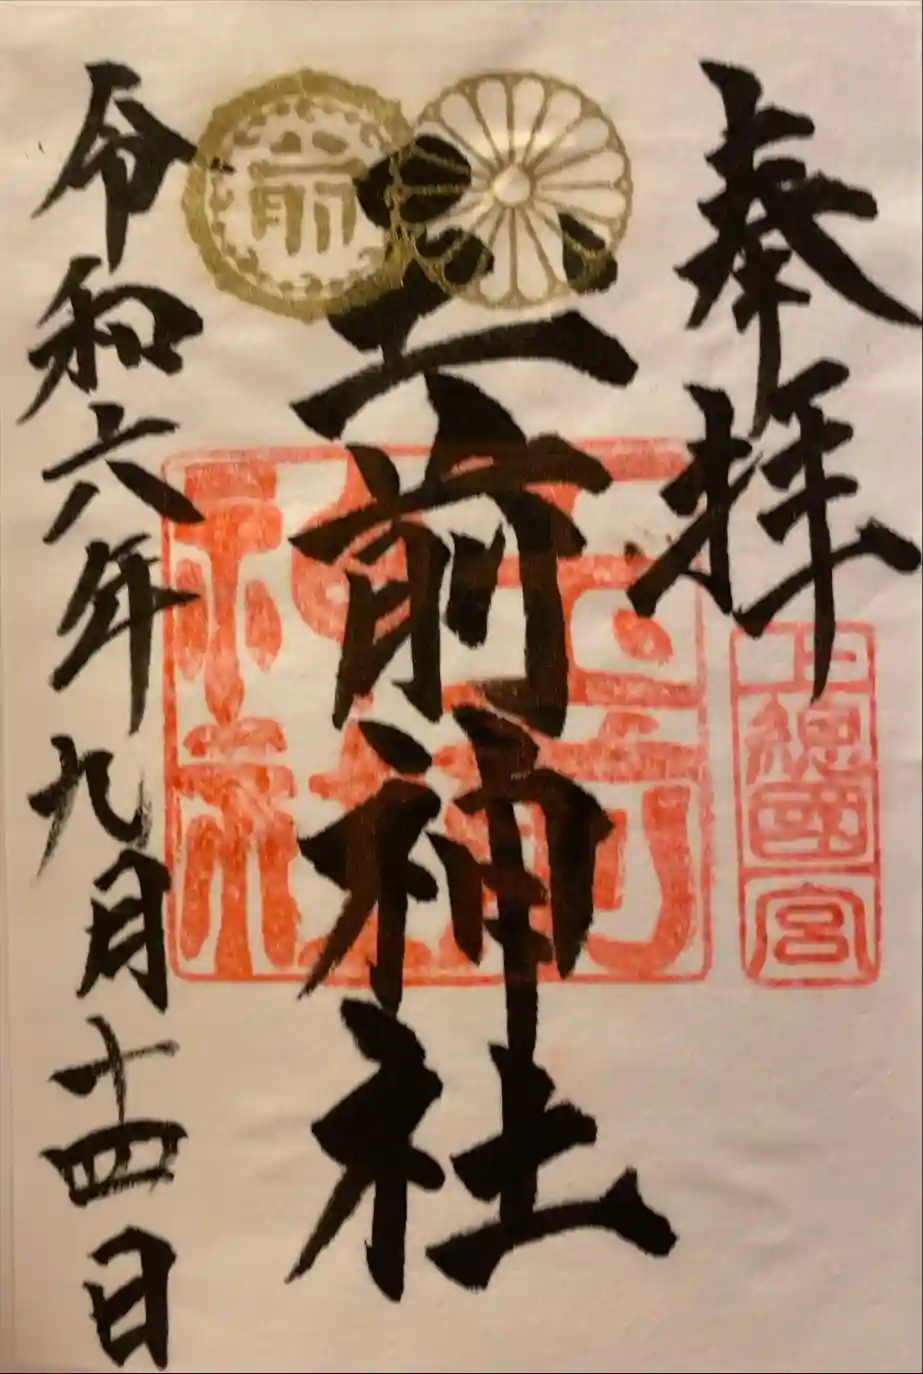 奉拝
上總國一宮
玉前神社
玉前神社
令和六年九月十四日